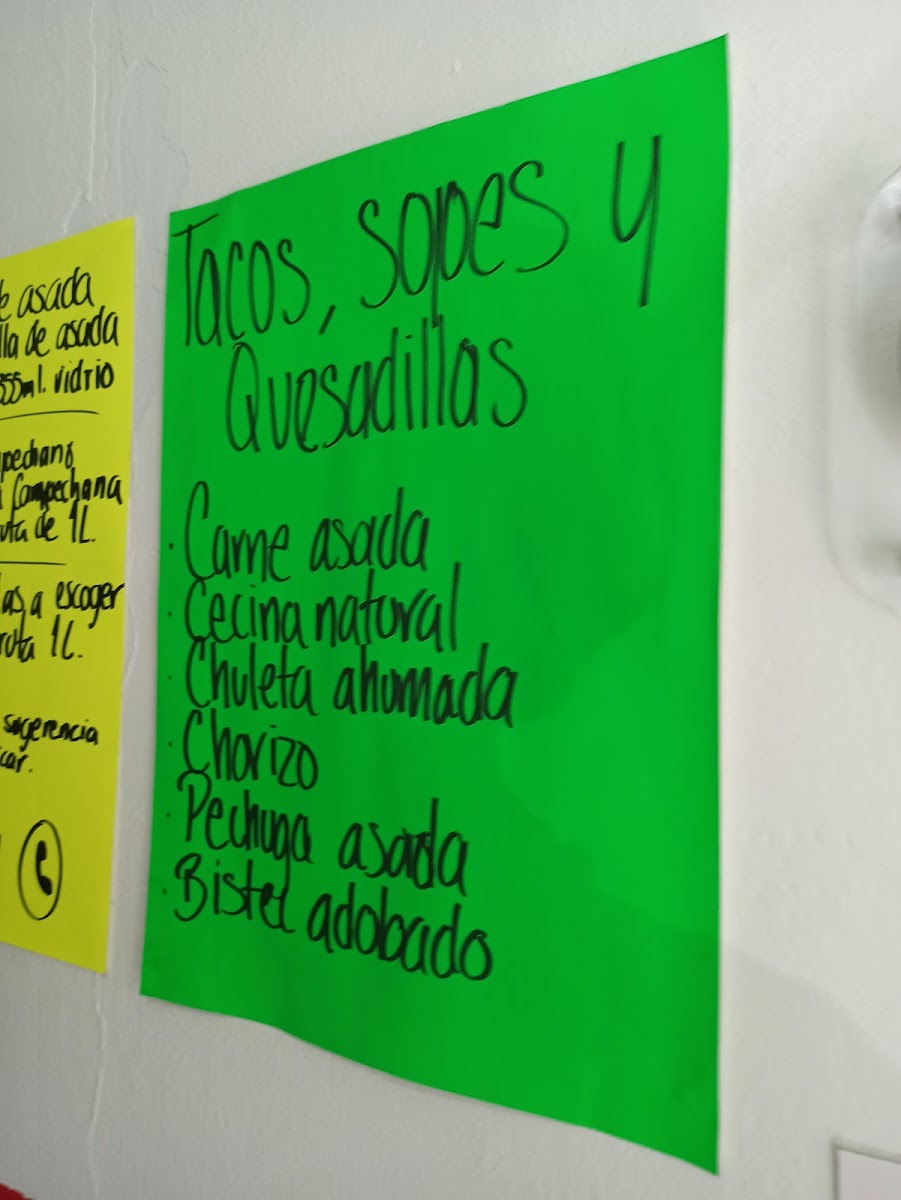 asada
de asada
355ml. vidrio
Campechana
de 1L.
a escoger
1L.
sugerencia
Tacos, sopes y
Quesadillas
· Carne asada
· Cecina natural
· Chuleta ahumada
· Chorizo
· Pechuga asada
· Bistec adobado